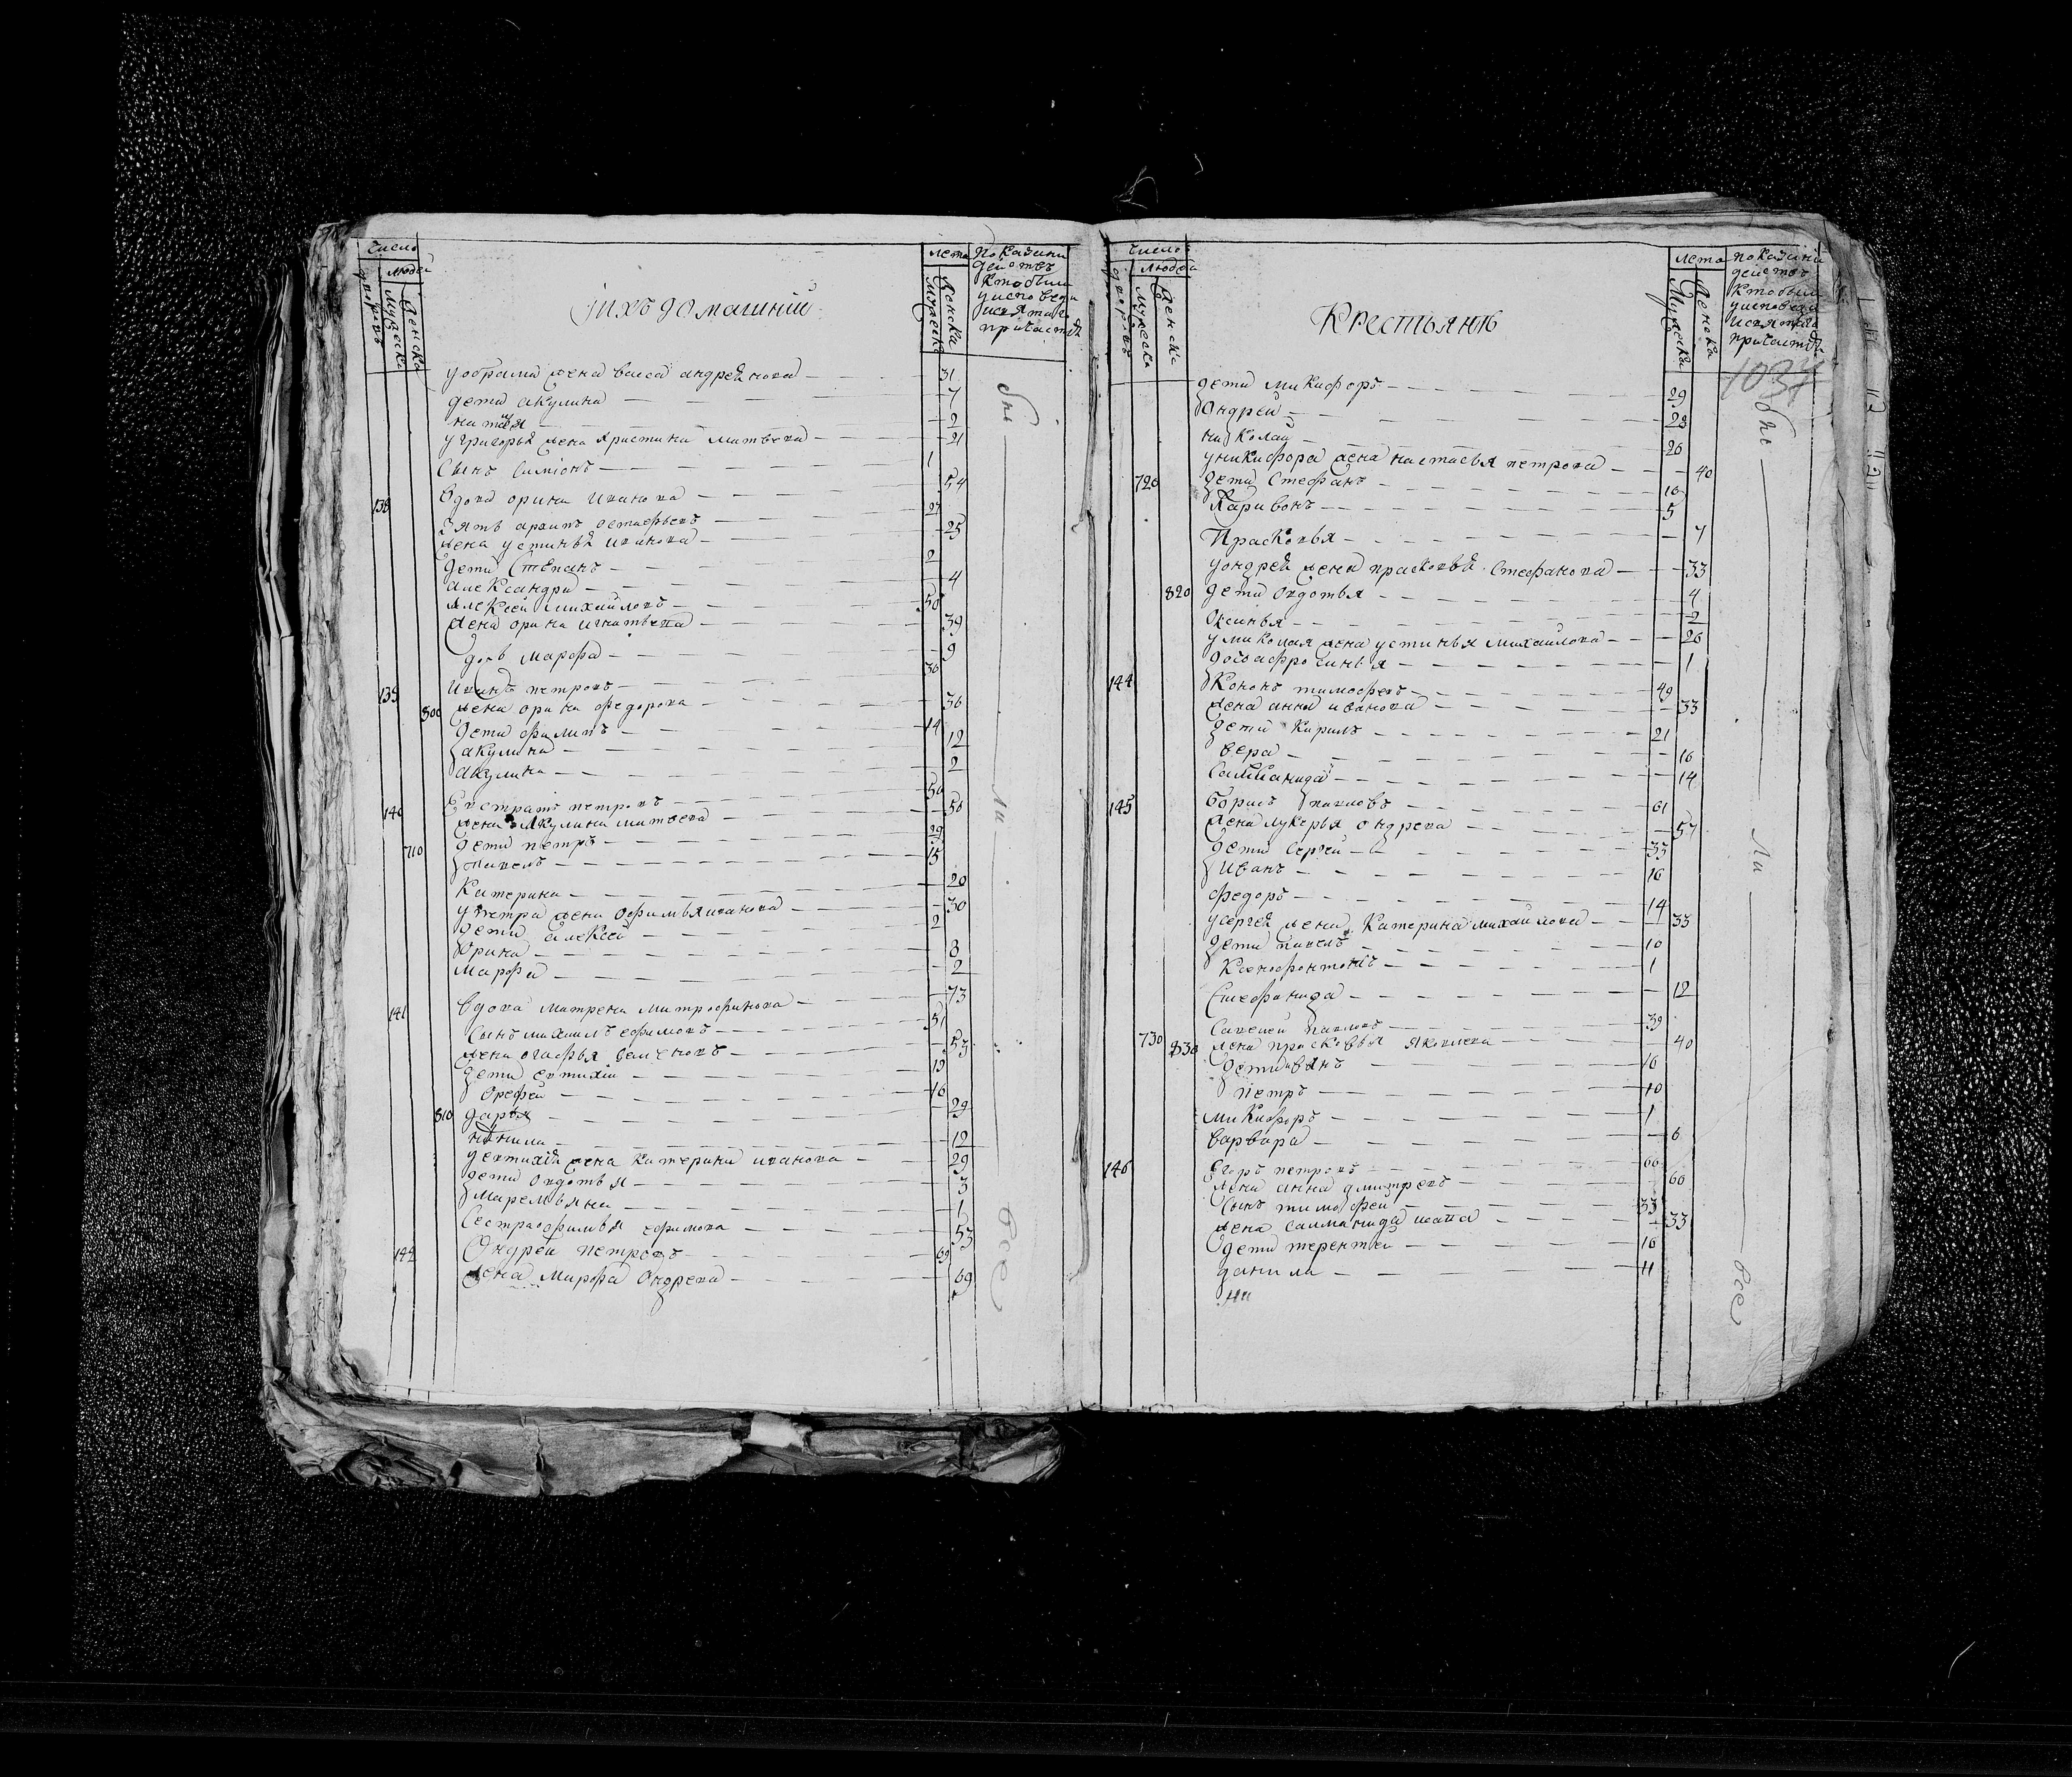 Число
Людей
дворовъ
Мужеска
Женска
Лета
Мужеска
Женска
Показани
действъ
Кто были
у исповеди
и святаго
причастия
Iихъ домашнии
жена васса андреянова — 31
дети акулина — 7
наталя — 2
у григорья жена христина матвева — 21
Сынъ Симионъ — 1
138 Вдова орина Иванова — 54
Зять архипъ остафьевъ — 27
жена устинья иванова — 25
дети Степанъ — 2
александра — 4
алексеи михаиловъ — 50
жена орина игнатьева — 39
дочь марфа — 9
139 Иванъ петровъ — 36
800 жена орина федорова — 36
дети филипъ — 14
акулина — 12
акулина — 2
140 Евстратъ петровъ — 50
жена акулина матвева — 50
дети петръ — 29
710 павелъ — 15
Катерина — 20
у петра жена офимья иванова — 30
дети алексеи — 2
Орина — 8
марфа — 2
141 Вдова матрена митрофанова — 73
Сынъ михаилъ ефимовъ — 51
жена огафья семеновъ — 53
дети евтихiи — 19
Орефеи — 16
810 дарья — 29
ненила — 12
у евтихiя жена катерина иванова — 29
дети овдотья — 3
маремьяна — 1
Сестра офимья ефимова — 53
142 Ондреи петровъ — 69
жена Марфа Ондрева — 69
бы
ли
все
Число
Людей
дворовъ
Мужеска
Женска
Лета
Мужеска
Женска
Показани
действъ
Кто были
у исповеди
и святаго
причастия
1037
Крестьянъ
дети микифоръ — 29
Ондреи — 23
николаи — 20
у никифора жена настасья петрова — 40
720 дети Стефанъ — 10
Харивонъ — 5
Прасковья — 7
у ондрея жена прасковья Стефанова — 33
820 дети овдотья — 4
Оксинья — 2
у миколая жена устинья михаилова — 26
дочь афросинья — 1
144 Кононъ тимофеевъ — 49
жена анна иванова — 33
дети Кирилъ — 21
вера — 16
Саломанида — 14
145 Борисъ павловъ — 61
жена лукерья ондрева — 57
дети Сергеи — 33
Иванъ — 16
федоръ — 14
у сергея жена Катерина михаилова — 33
дети павелъ — 10
Ксенофонтонъ — 1
Стефанида — 12
Савелеи павловъ — 39
730 830 жена прасковья яковлева — 40
дети иванъ — 16
петръ — 10
микифоръ — 1
варвара — 6
146 Егоръ петровъ — 66
жена анна дмитревъ — 60
Сынъ тимофеи — 33
жена саламанида исаева — 33
дети терентеи — 16
данила — 11
бы
ли
все